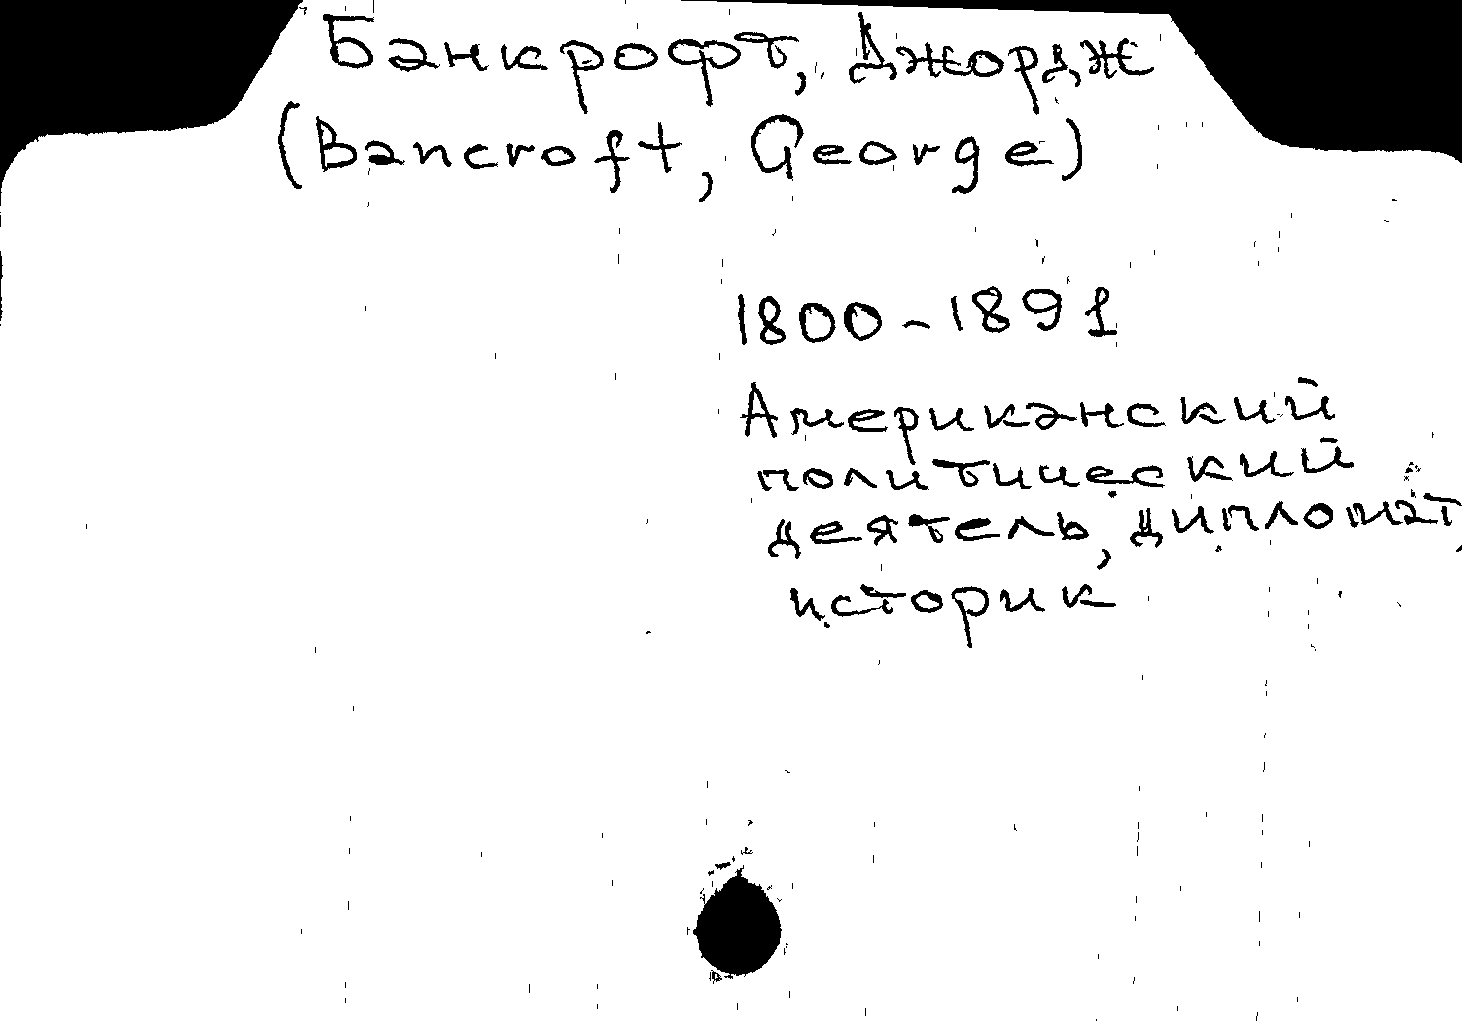 Банкрофт, Джордж
(Bancroft, George)
1800-1891
Американский
политический
деятель, дипломат,
историк